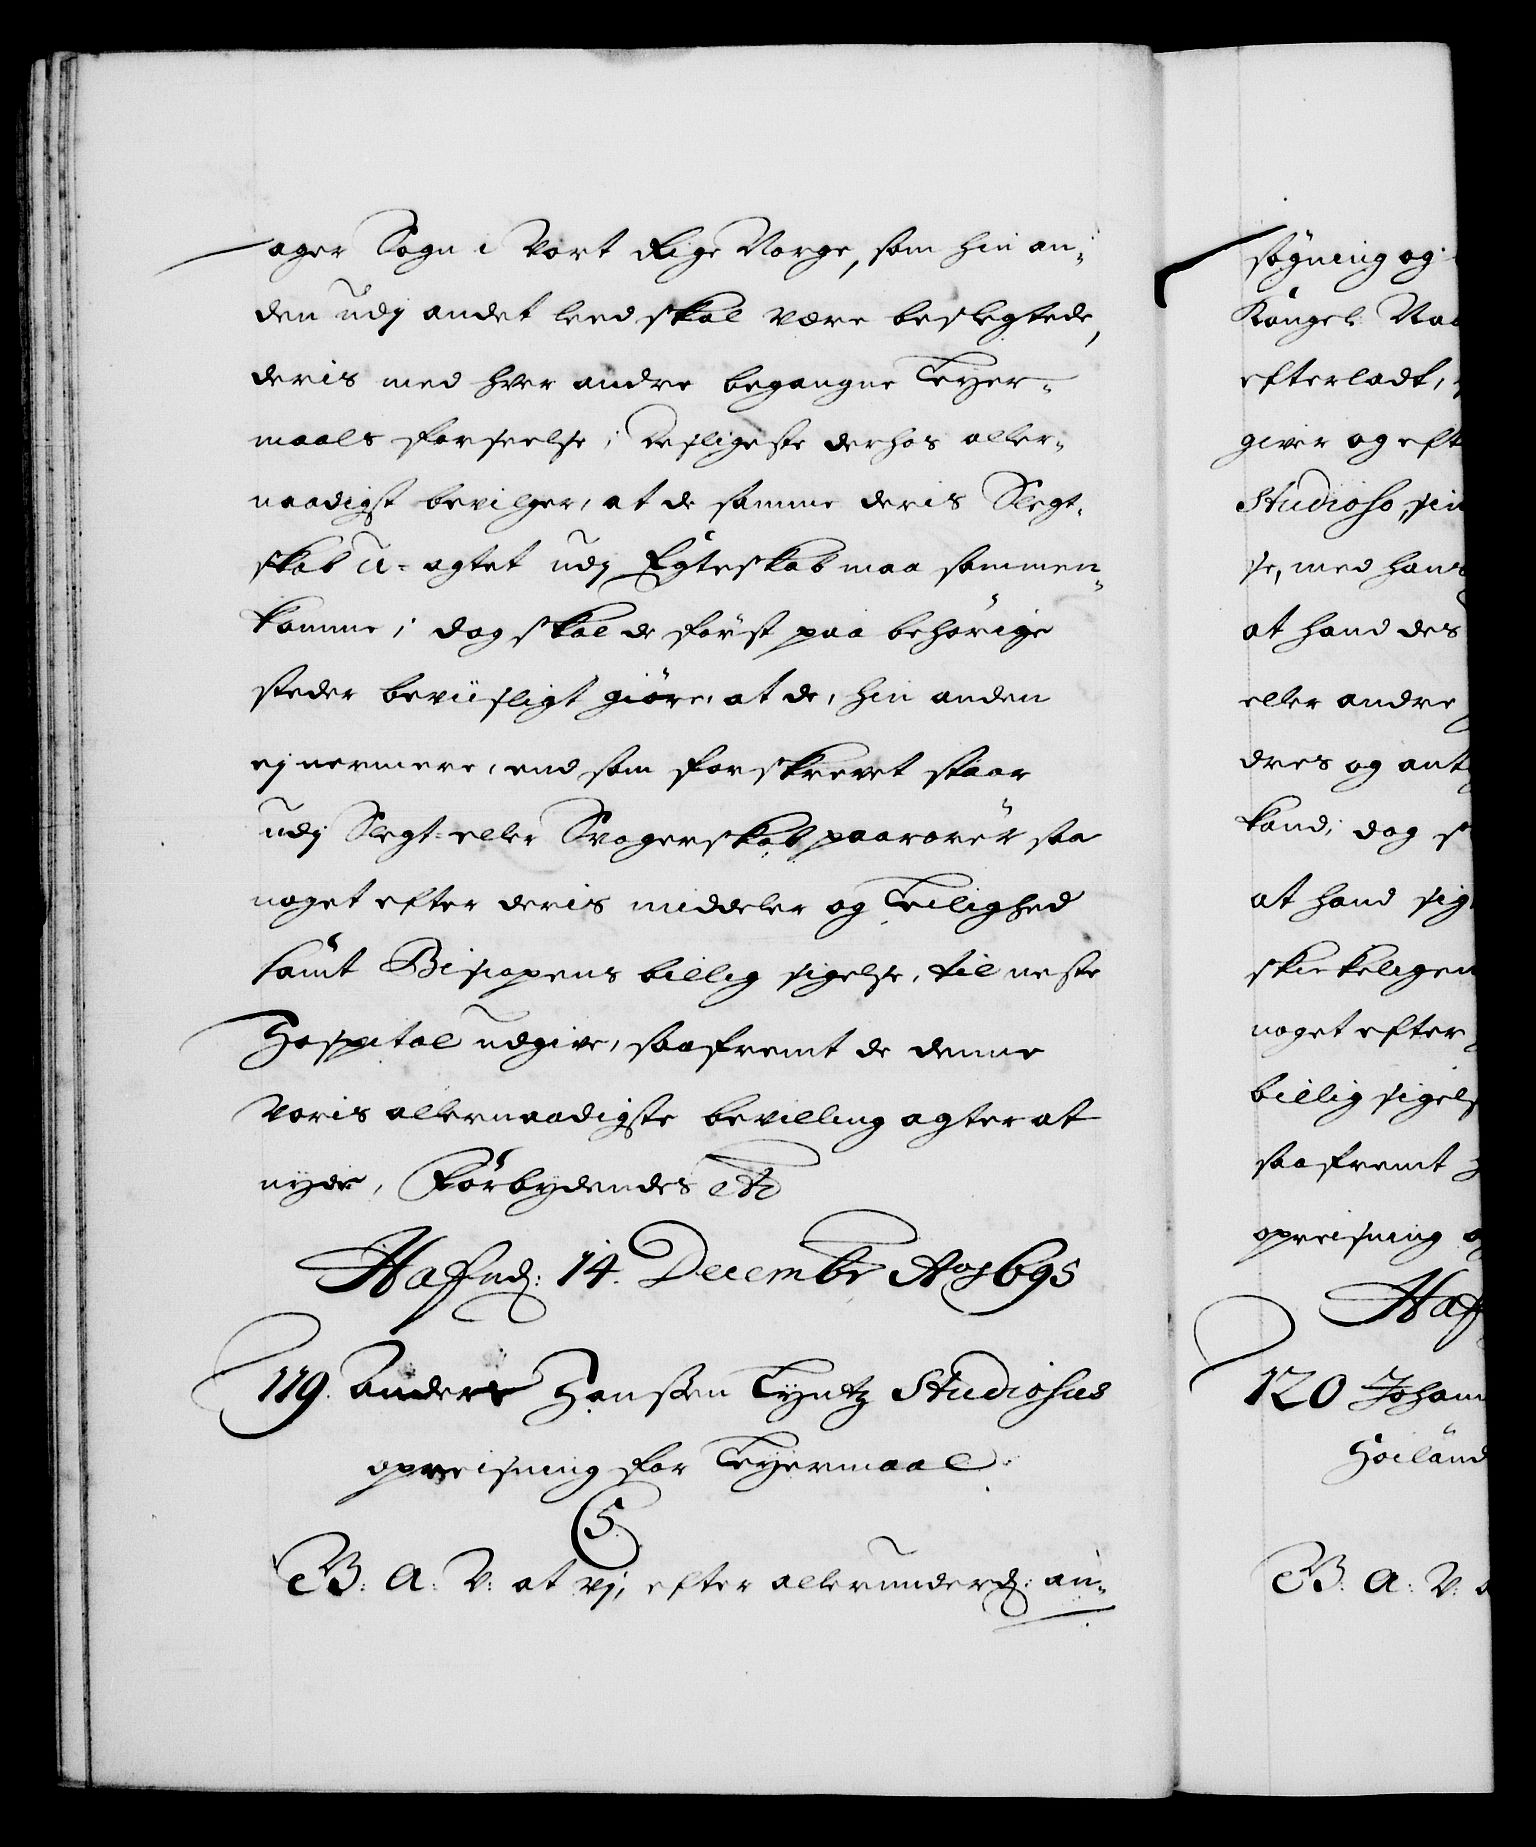 ager Sogn i Vort Rige Norge, som hin an-
den udj andet leed skal være beslegtede,
deris med hver andre begangne Leyer-
maals forseelse; Desligeste derhos aller-
naadigst bevilger, at de samme deris Slegt-
skab u-agtet udj Egteskab maa sammen-
komme; dog skal de först paa behörige
steder beviisligt giöre, at de, hin anden
ej nermere, end som forskrevet staar
udj Slegt- eller Svogerskab paarörer saa
noget efter deris middeler og Leilighed
samt Biscopens billig sigelse, til neste
Hospital udgive, saafremt de denne
Voris allernaadigste bevilling agter at
nyde, Förbydendes etc
Hafnd: 14. Decembr Ao 1695
119. Anders Hanssen Tyntz Studiosus
opreisning for Leyermaal.
5.
B: A: V: at vj, efter allerunderd: an-
sögning og
Kongel: Naa
efterladt,
giver og eft
Studioso, sin
se, med hans
at hand des
eller andre
dres og ant
kand; dog s
at hand sig
skickeligen
noget efter
billig sigels
saafremt h
opreisning o
Haf
120 Johan
Höiland
B: A: V: a